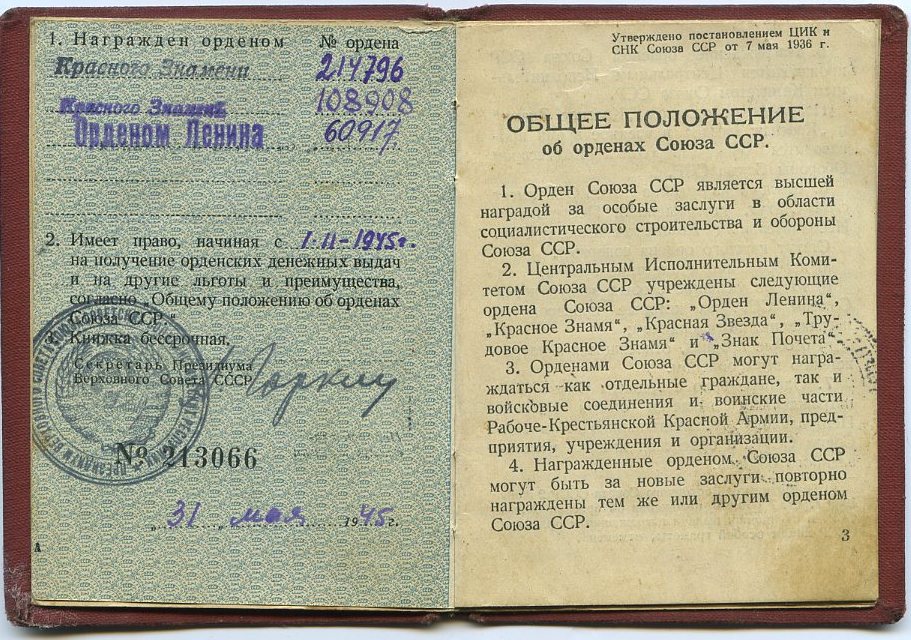 1. Награжден орденом № ордена
Красного Знамени 214796
Красного Знамени 108908
Орденом Ленина 60917
2. Имеет право, начиная с 1-II-1945г.
на получение орденских денежных выдач
и на другие льготы и преимущества,
согласно „Общему положению об орденах
Союза ССР.“
Книжка бессрочная,
Секретарь Президиума
Верховного Совета СССР
№ 213066
„31„ мая 1945г.
А
Утверждено постановлением ЦИК и
СНК Союза ССР от 7 мая 1936 г.
ОБЩЕЕ ПОЛОЖЕНИЕ
об орденах Союза ССР.
1. Орден Союза ССР является высшей
наградой за особые заслуги в области
социалистического строительства и обороны
Союза ССР.
2. Центральным Исполнительным Коми-
тетом Союза ССР учреждены следующие
ордена Союза ССР: „Орден Ленина“,
„Красное Знамя“, „Красная Звезда“, „Тру-
довое Красное Знамя“ и „Знак Почета“.
3. Орденами Союза ССР могут награ-
ждаться как отдельные граждане, так и
войсковые соединения и воинские части
Рабоче-Крестьянской Красной Армии, пред-
приятия, учреждения и организации.
4. Награжденные орденом Союза ССР
могут быть за новые заслуги повторно
награждены тем же или другим орденом
Союза ССР.
3